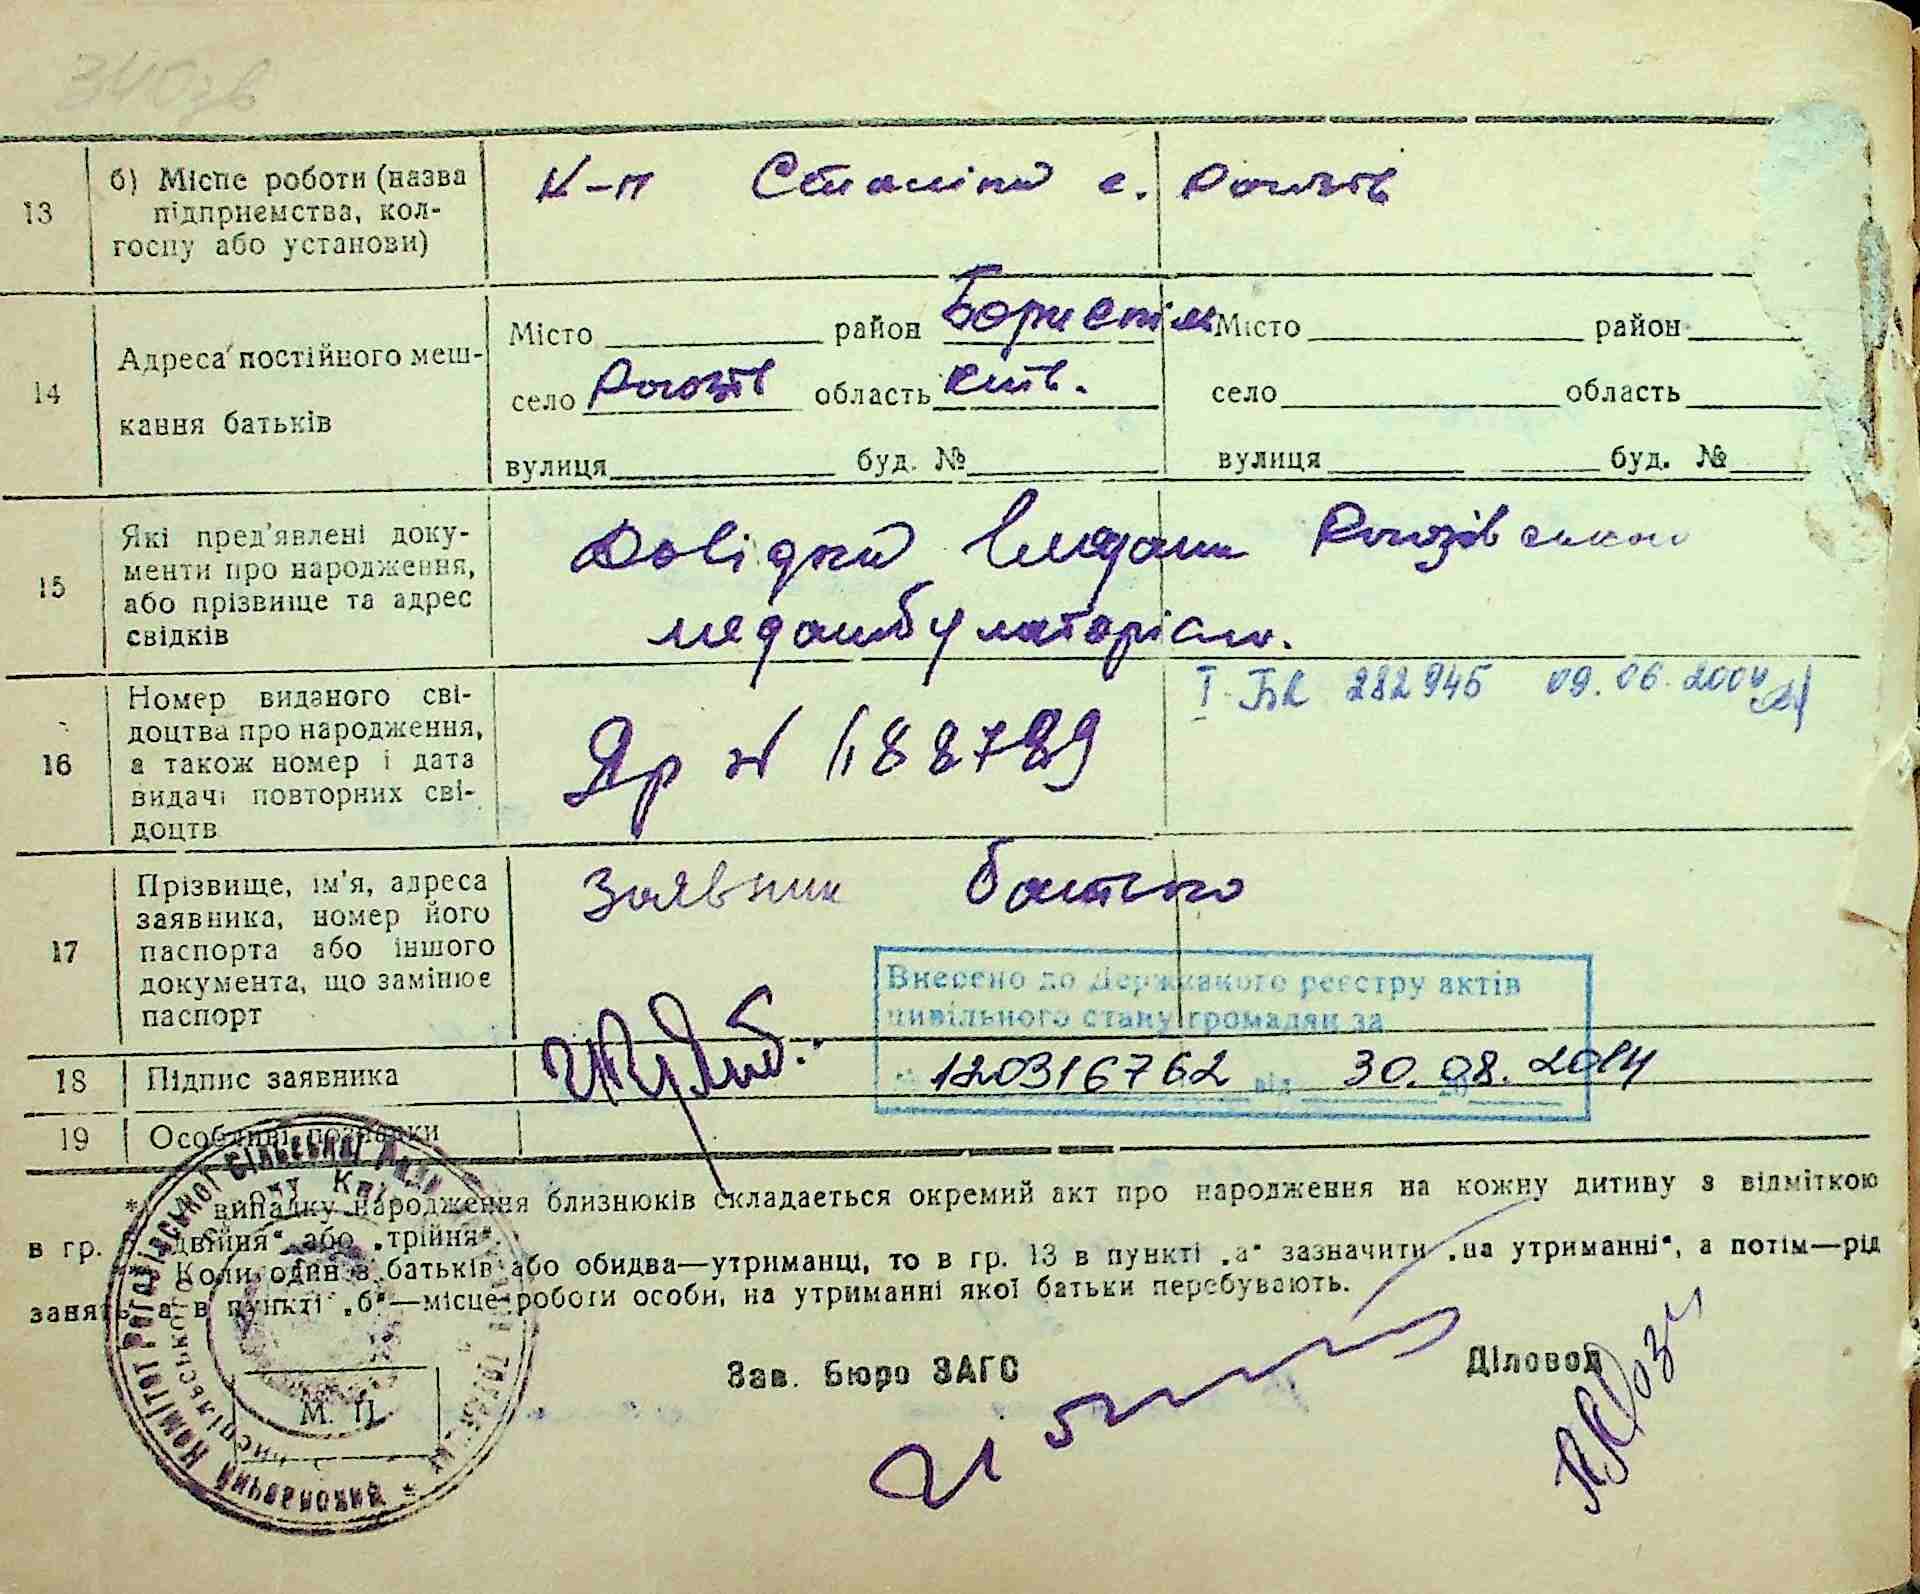 13
б) Місце роботи (назва
підприємства, кол-
госпу або установи)
К-п Сталіна с. Рогозів
14
Адреса постійного меш-
кання батьків
Місто район Бориспіль
село Рогозів область Київ.
вулиця буд. №
Місто район
село область
вулиця буд. №
15
Які пред'явлені доку-
менти про народження,
або прізвище та адрес
свідків
Довідка видана Рогозівською
медамбулаторією.
16
Номер виданого сві-
доцтва про народження,
а також номер і дата
видачі повторних сві-
доцтв
№ 188789
282945 09.06.2004
17
Прізвище, ім'я, адреса
заявника, номер його
паспорта або іншого
документа, що замінює
паспорт
Заявник батько
Внесено до Державного реєстру актів
цивільного стану громадян за
120316762 від 30.08.2014
18
Підпис заявника
19
Особливі познавки
* випадку народження близнюків складається окремий акт про народження на кожну дитину з відміткою
в гр. двійня" або „трійня".
Коли один з батьків або обидва—утриманці, то в гр. 13 в пункті „а" зазначити „на утриманні", а потім—рід
занять, а в пункті „б"—місце роботи особи, на утриманні якої батьки перебувають.
Зав. Бюро ЗАГС
Діловод
М. П.
Виконавчий Комітет Рогозівської Сільської Ради